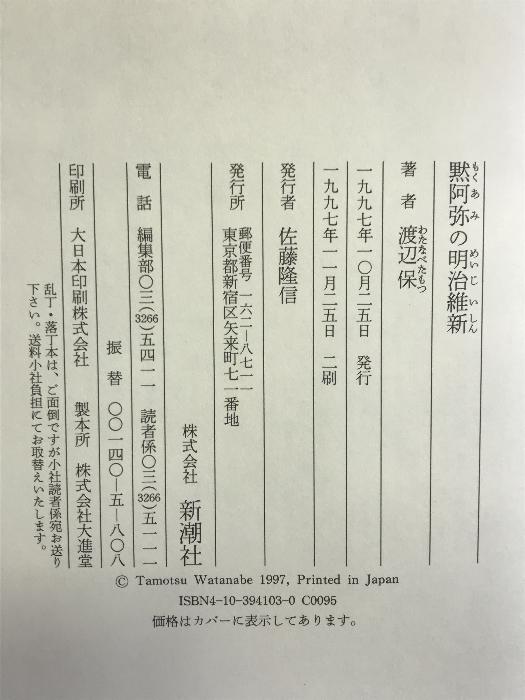 黙阿弥の明治維新
もくあみ めいじいしん
著者 渡辺保
わたなべたもつ
一九九七年一〇月二五日 発行
一九九七年一一月二五日 二刷
発行者 佐藤隆信
発行所 郵便番号 一六二—八七一一
東京都新宿区矢来町七一番地
株式会社 新潮社
電話 編集部〇三(3266)五四一一 読者係〇三(3266)五一一一
振替 〇〇一四〇—五—八〇八
印刷所 大日本印刷株式会社 製本所 株式会社大進堂
乱丁・落丁本は、ご面倒ですが小社読者係宛お送り
下さい。送料小社負担にてお取替えいたします。
© Tamotsu Watanabe 1997, Printed in Japan
ISBN4-10-394103-0 C0095
価格はカバーに表示してあります。